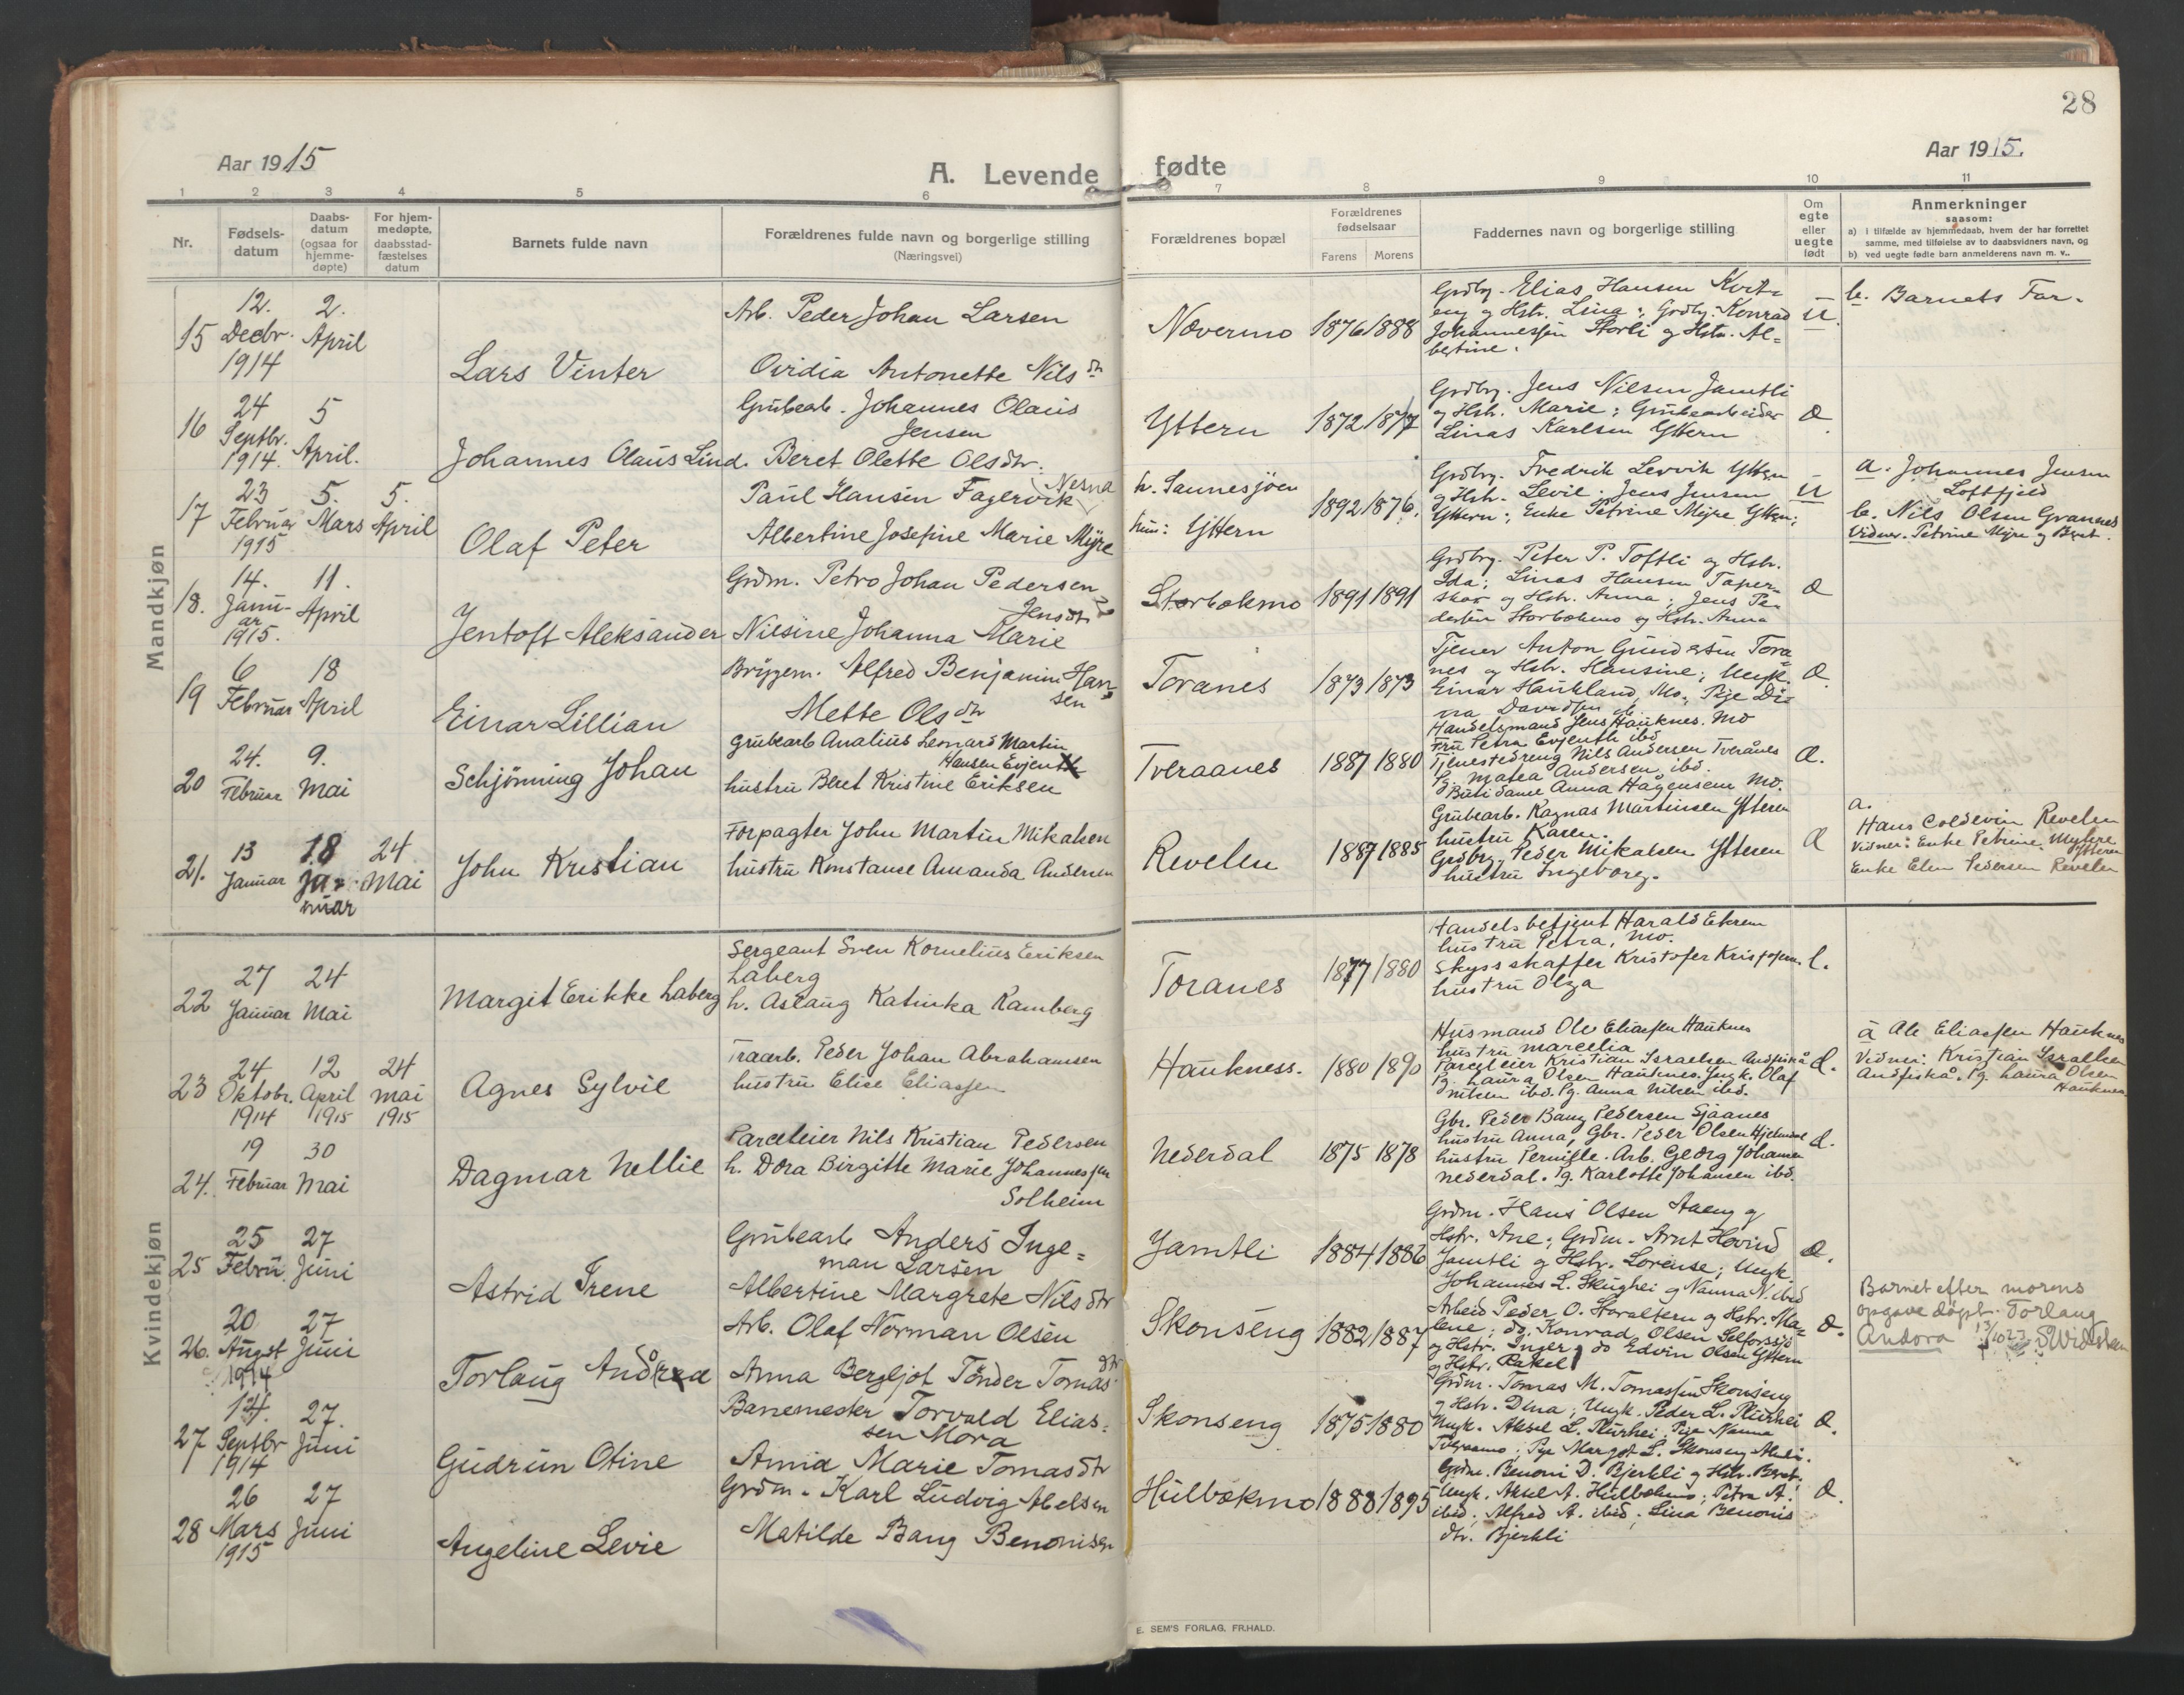 28
Aar 1915
A. Levende fødte
Aar 1915.
1 2 3 4 5 6 7 8 9 10 11
Nr.
Fødsels-
datum
Daabs-
datum
(ogsaa for
hjemme-
døpte)
For hjem-
medøpte,
daabsstad-
fæstelses
datum
Barnets fulde navn
Forældrenes fulde navn og borgerlige stilling
(Næringsvei)
Forældrenes bopæl
Forældrenes
fødselsaar
Farens Morens
Faddernes navn og borgerlige stilling
Om
egte
eller
uegte
født
Anmerkninger
saasom:
a) i tilfælde av hjemmedaab, hvem der har forrettet
samme, med tilføielse av to daabsvidners navn, og
b) ved uegte fødte barn anmelderens navn m. v..
Mandkjøn
15
12.
Decbr.
1914
2.
April
Lars Vinter
Arb. Peder Johan Larsen
Ovidia Antonette Nilsdtr
Nævermo
1876 1888
Grdbr. Elias Hansen Kvit-
eng og Hstr. Lina; Grdbr. Konrad
Johannessen Storli og Hstr. Al-
bertine.
U
b. Barnets Far.
16
24
Septbr.
1914.
5
April.
Johannes Olaus Lind
Grubearb. Johannes Olaus
Jensen
Beret Olette Olsdtr.
Yttern
1872 1877
Grdbr. Jens Nilsen Jamtli
og Hstr. Marie; Grubearbeider
Linas Karlsen Yttern
Æ
17
23
Februar
1915
5.
Mars
5.
April
Olaf Peter
Paul Hansen Fagervik (Nesna)
Albertine Josefine Marie Myre
h. Sannesjøen
hun: Yttern
1892 1876.
Grdbr. Fredrik Lervik Yttern
og Hstr. Levie; Jens Jensen
Yttern; Enke Petrine Myre Yttern;
U
a. Johannes Jensen
Loftfjeld
b. Nils Olsen Grannes
Vidner. Petrine Myre og Beret.
18.
14.
Janu-
ar
1915.
11.
April
Jentoft Aleksander
Grdm. Petro Johan Pedersen
Jensdtr
Nilsine Johanna Marie
Storbækmo
1891 1891
Grdbr. Peter P. Toftli og Hstr.
Ida; Linas Hansen Taper-
skar og Hstr. Anna; Jens Pe-
dersen Storbækmo og Hstr. Anna
Æ
19
6
Februar
18
April
Einar Lillian
Bryggem. Alfred Benjamin Han-
sen
Mette Olsdtr
Toranes
1873 1873
Tjener Anton Gundersen Tora-
nes og Hstr. Hansine; Ungk.
Einar Haukland, Mo; Pige Di-
na Davidsen
Æ.
20
24.
Februar
9.
Mai
Schjønning Johan
Grubearb Analius Leonard Martin
Hansen Evjen
hustru Beret Kristine Eriksen
Tveraanes
1887 1880
Handelsmand Jens Hauknes. Mo
Fru Petra Evjenth ibd
Tjenestedreng Nils Andersen Tverånes
Pg. Matea Andersen ibd.
Buti dame Anna Hågensen Mo.
Æ.
21.
13
Januar
18
Ja-
nuar
24
Mai
John Kristian
Forpagter John Martin Mikalsen
hustru Konstanse Amanda Andersen
Revelen
1887 1885
Grubearb. Ragnas Martinsen Ytteren
hustru Karen.
Grdbr. Peder Mikalsen Ytteren
hustru Ingeborg.
Æ
a.
Hans Coldevin Revelen
Vidner: Enke Petrine Myhre
Ytteren
Enke Elen Pedersen Revelen
Kvindekjøn
22
27
Januar
24
Mai
Margit Erikke Laberg
Sergeant Sven Kornelius Eriksen
Laberg
h. Aslaug Katinka Ramberg
Toranes
1877 1880
Handelsbetjent Harald Ekrem
hustru Petra, Mo.
Skysskaffer Kristofer Kristofersen
hustru Olga
23
24
Oktobr.
1914
12
April
1915
24
Mai
1915
Agnes Sylvie
Traarb. Peder Johan Abrahamsen
hustru Elise Eliassen
Haukness.
1880 1890
Husmand Ole Eliassen Hauknes
hustru Marcelia
Parceleier Kristian Israelsen Andfiskå
Pg. Laura Olsen Hauknes. Ungk. Olaf
Nilsen ibd. Pg. Anna Nilsen ibd.
a Ole Eliassen Hauknes
Vidner: Kristian Israelsen
Andfiskå. Pg. Laura Olsen
Hauknes
24.
19
Februar
30
Mai
Dagmar Nellie
Parceleier Nils Kristian Pedersen
h. Dora Birgitte Marie Johannessen
Solheim
Nederdal
1875 1878
Gbr. Peder Bang Pedersen Sjaanes
hustru Anna, Gbr. Peder Olsen Hjelmdal
hustru Pernille. Arb. Georg Johansen
Nederdal. Pg. Karlotte Johansen ibd.
25
25
Febru
27
Juni
Astrid Irene
Grubearb Anders Inge-
man Larsen
Albertine Margrete Nilsdtr
Jamtli
1884 1886
Grdm. Hans Olsen Aaeng og
Hstr. Ane; Grdm. Arnt Hovind
Jamtli og Hstr. Lorense; Ungk.
Johannes L. Skughei og Nanna N. ibd
Æ.
26.
20
Augst
1914
27
Juni
Torlaug Andrea
Arb. Olaf Norman Olsen
Anna Bergljot Tønder Tomasdtr
Skonseng
1882 1887
Arbeid Peder O. Storaltern og Hstr. Ma-
lene; do. Konrad Olsen Selforssjo
og Hstr. Inger; do Edvin Olsen Yttern
og Hstr. Rakel
Æ.
Barnet efter morens
opgave døpt. Torlaug
Andora 13/10 23
27
14.
Septbr
1914
27.
Juni
Gudrun Otine
Banemester Torvald Elias-
sen Mora
Anna Marie Tomasdtr
Skonseng
1875 1880
Grdm. Tomas M. Tomassen Skonseng
og Hstr. Dina; Ungk. Peder L. Plurhei
Ungk. Aksel L. Plurhei; Pige Nanna
Tveraamo; Pige Margot L. Skonseng
Æ.
28
26
Mars
1915
27
Juni
Angeline Levie
Grdm. Karl Ludvig Abelsen
Matilde Bang Benonisen
Hulbækmo
1888 1895
Grdm. Benoni D. Bjerkli og Hstr. Beret;
Ungk. Aksel A. Hulbækmo; Petra A.
ibid; Alfred A. ibid; Lina Benonis
dtr. Bjerkli
Æ.
E. SEM'S FORLAG, FR.HALD.